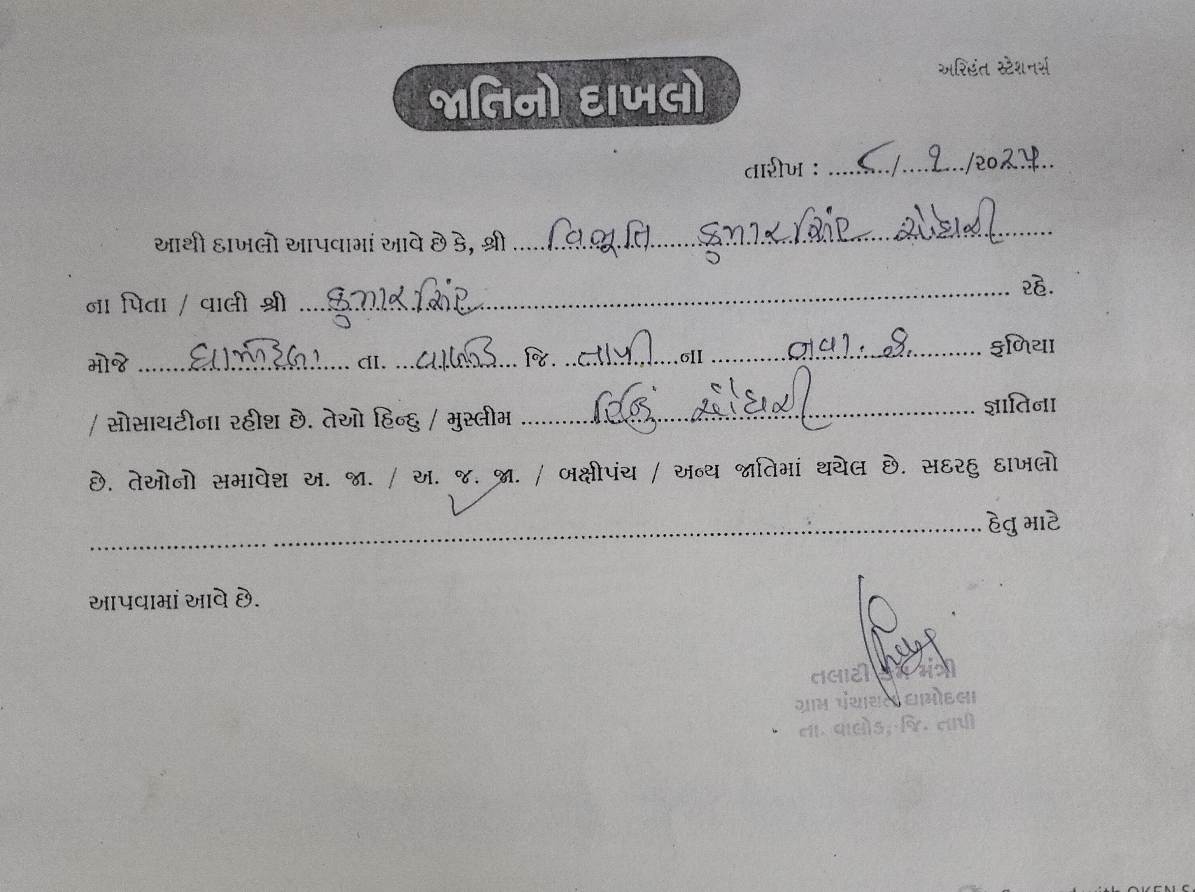 અરિહંત સ્ટેશનર્સ
જાતિનો દાખલો
તારીખ : ૮/૧/૨૦૨૫
આથી દાખલો આપવામાં આવે છે કે, શ્રી વિભૂતિ કુમારસિંહ ચૌધરી
ના પિતા / વાલી શ્રી કુમારસિંહ રહે.
મોજે ધામોદલા તા. વાલોડ જિ. તાપી ના નવા. ફ. ફળિયા
/ સોસાયટીના રહીશ છે. તેઓ હિન્દુ / મુસ્લીમ હિન્દુ ચૌધરી જ્ઞાતિના
છે. તેઓનો સમાવેશ અ. જા. / અ. જ. જા. / બક્ષીપંચ / અન્ય જાતિમાં થયેલ છે. સદરહુ દાખલો
હેતુ માટે
આપવામાં આવે છે.
તલાટી કમ મંત્રી
ગ્રામ પંચાયત ધામોદલા
તા. વાલોડ, જિ. તાપી